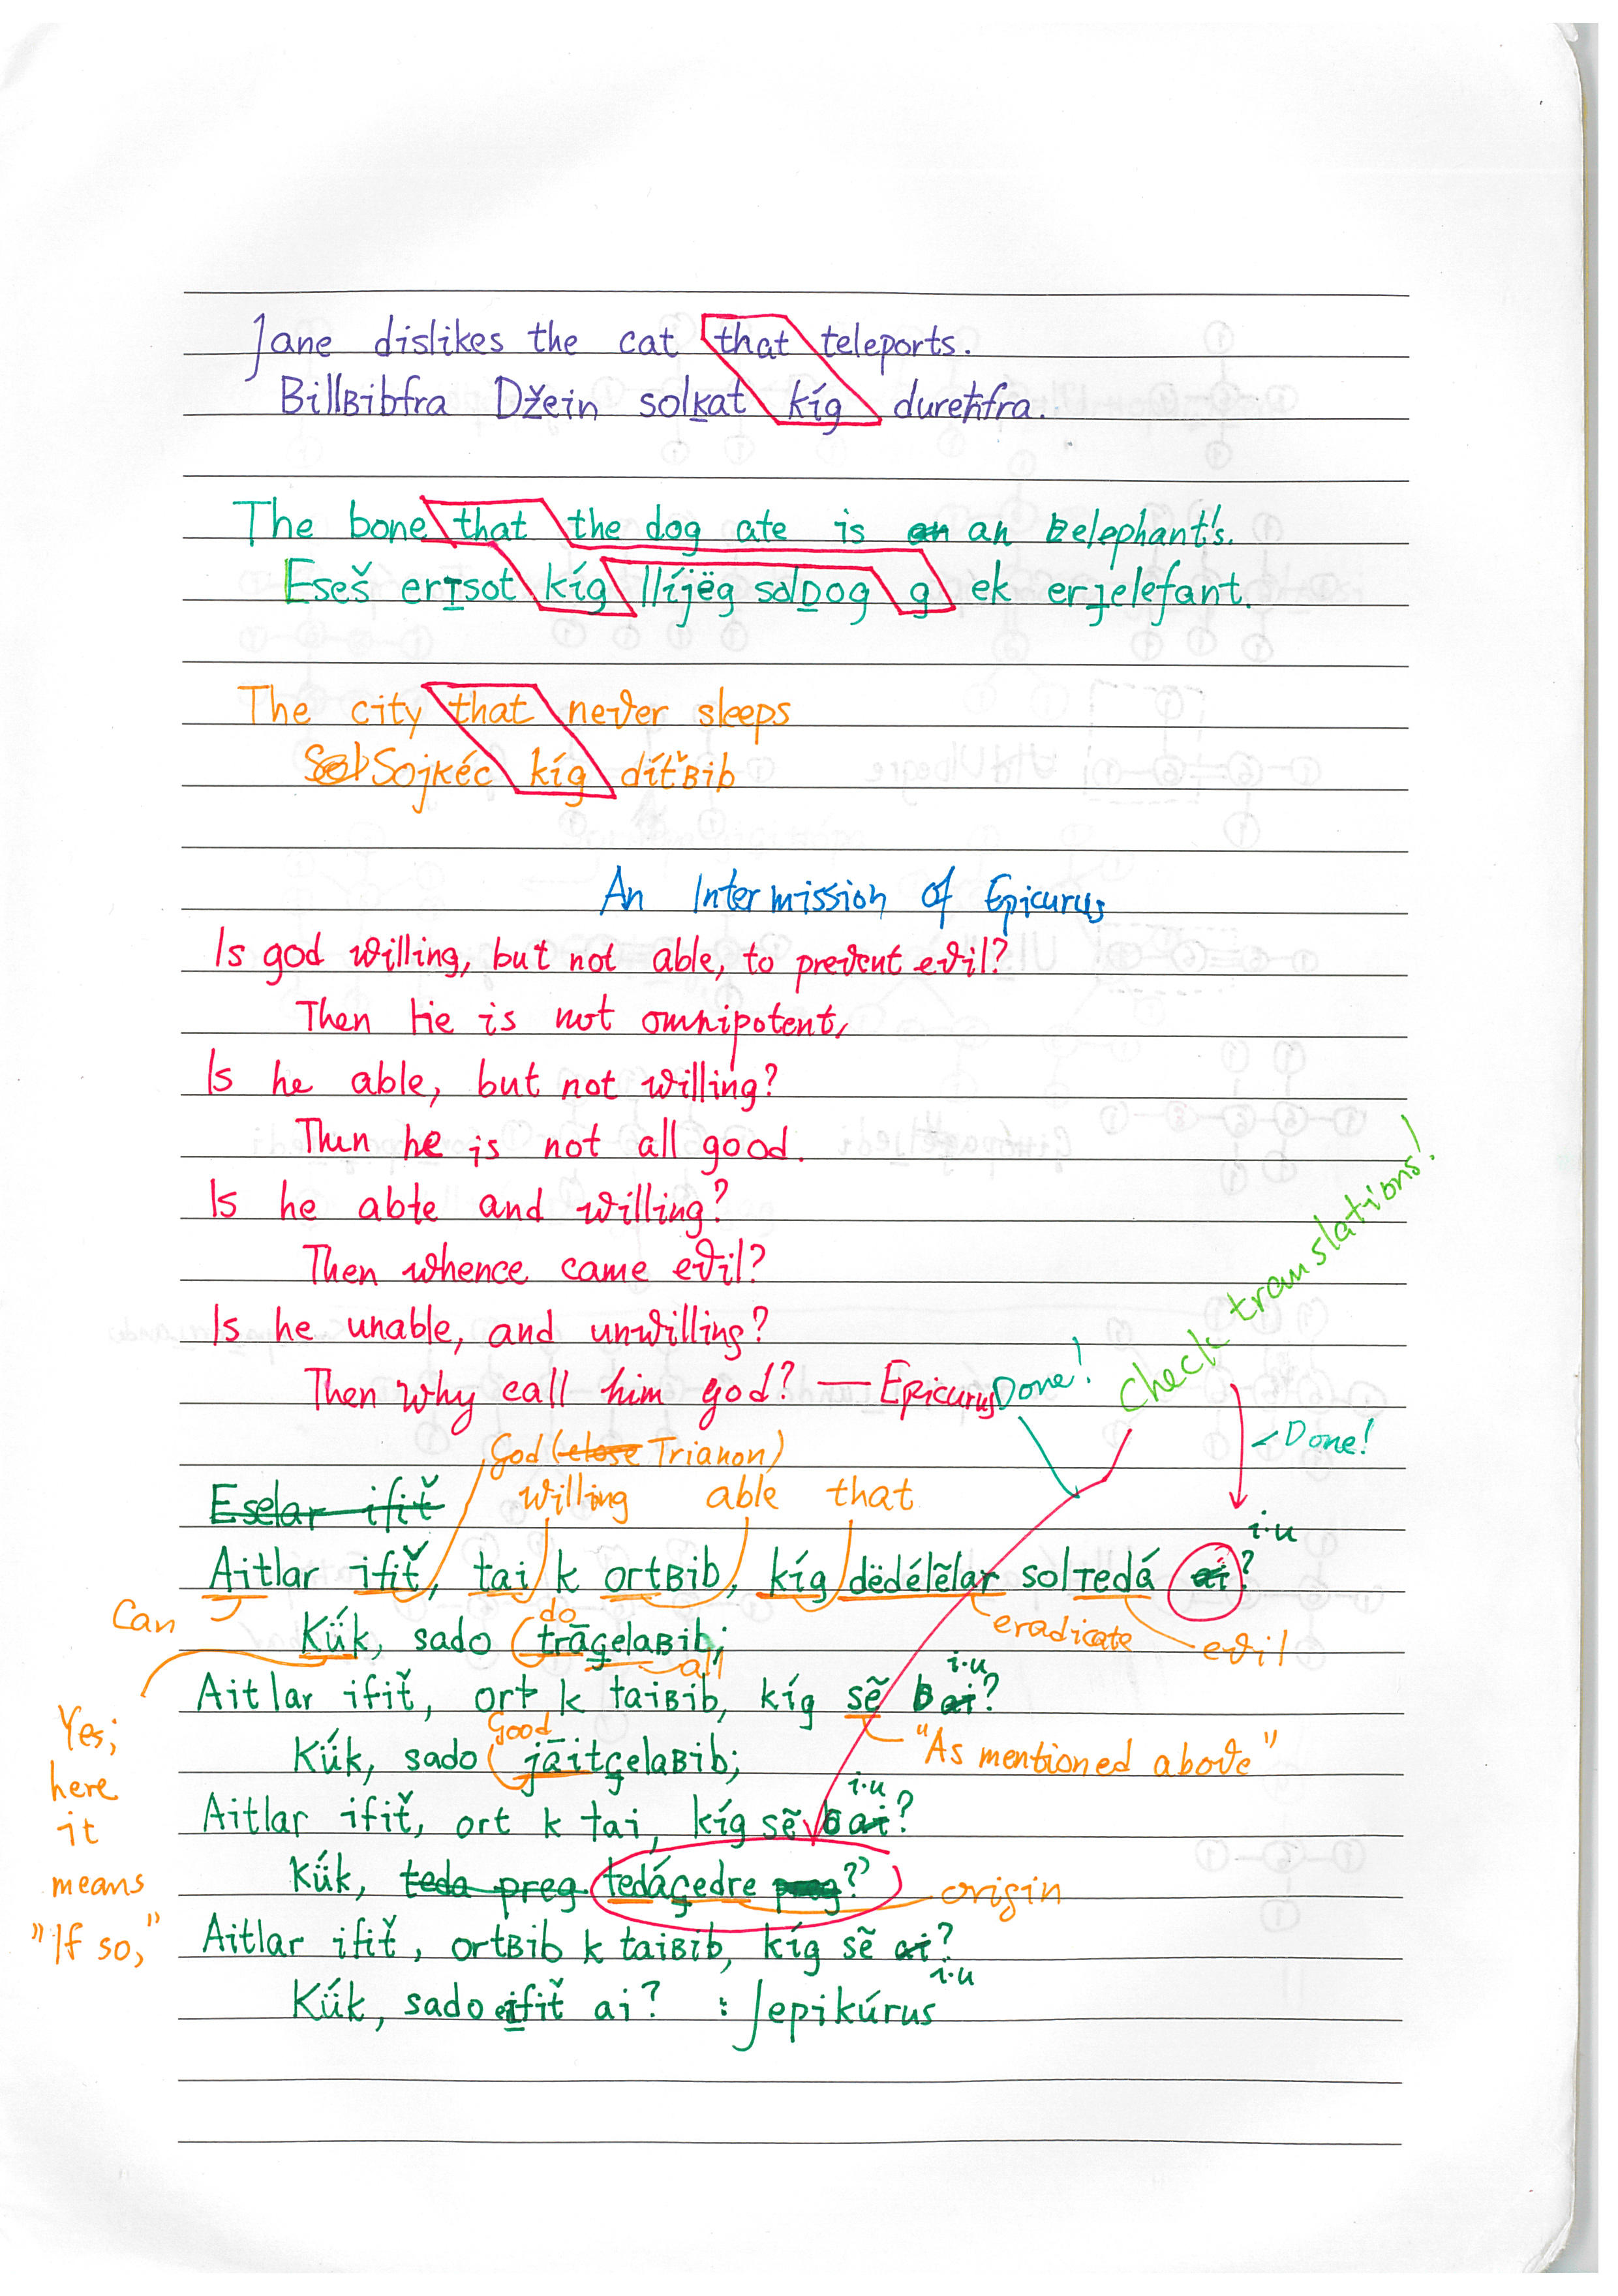 Jane dislikes the cat that teleports.
Billʙibfra Džein solḵat kíg dureħfra.
The bone that the dog ate is an an elephant's.
Eseš erɪsot kíg llíjëg solᴅog g ek erjelefant.
The city that never sleeps
Sojkéc kíg dítʼʙib
An Intermission of Epicurus
Is god willing, but not able, to prevent evil?
Then he is not omnipotent,
Is he able, but not willing?
Then he is not all good.
Is he able and willing?
Then whence came evil?
Is he unable, and unwilling?
Then why call him god? — Epicurus
Done!
Check translations!
Done!
God (close Trianon)
willing able that
Eselar ifiť
i·u
Aitlar ifiť, tai k ortʙib, kíg dëdélẽlar solᴛedá ai?
Can
do
eradicate
evil
Kű̈k, sado trāģelaʙib;
all
i·u
Aitlar ifiť, ort k taiʙib, kíg sẽ ai?
Good
"As mentioned above"
Kű̈k, sado jāitģelaʙib;
i·u
Aitlar ifiť, ort k tai, kíg sẽ ai?
Kű̈k, teda preg tedáģedre ?
origin
Yes;
here
it
means
"If so,"
Aitlar ifiť, ortʙib k taiʙib, kíg sẽ ai?
i·u
Kű̈k, sado ifiť ai? : Jepikúrus